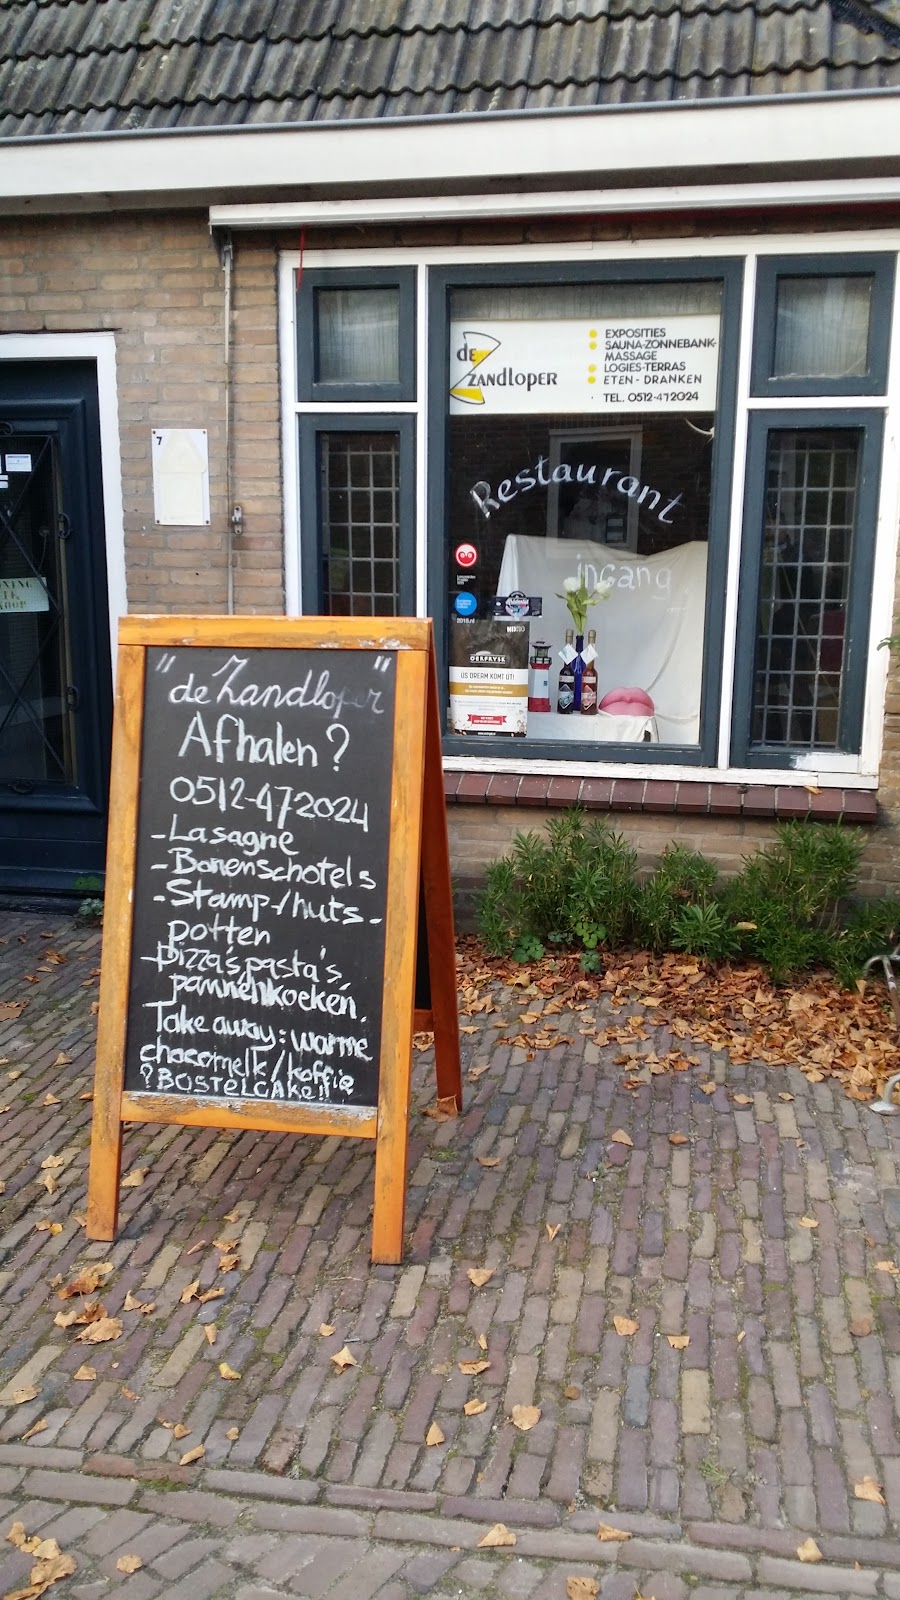 de
Zandloper
EXPOSITIES
SAUNA-ZONNEBANK-
MASSAGE
LOGIES-TERRAS
ETEN-DRANKEN
TEL. 0512-472024
Restaurant
ingang
7
OERFRYSK
US DREAM KOMT ÚT!
"de Zandloper"
Afhalen?
0512-472024
-Lasagne
-Bonenschotels
-Stamp-/huts-
potten
-pizza's, pasta's,
pannenkoeken.
Take away: warme
chocomelk/koffie
?BOSTELCAKe!!